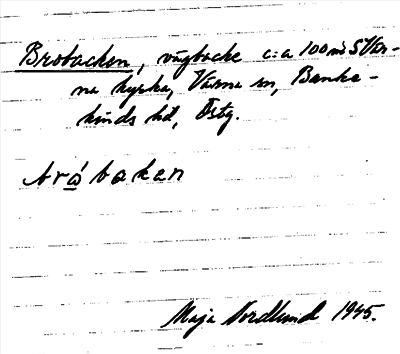 Brobacken, vägbacke c:a 100 m S Vär-
na kyrka, Värna sn, Banke-
kinds hd, Östg.
bròbakan
Maja Nordlund 1945.